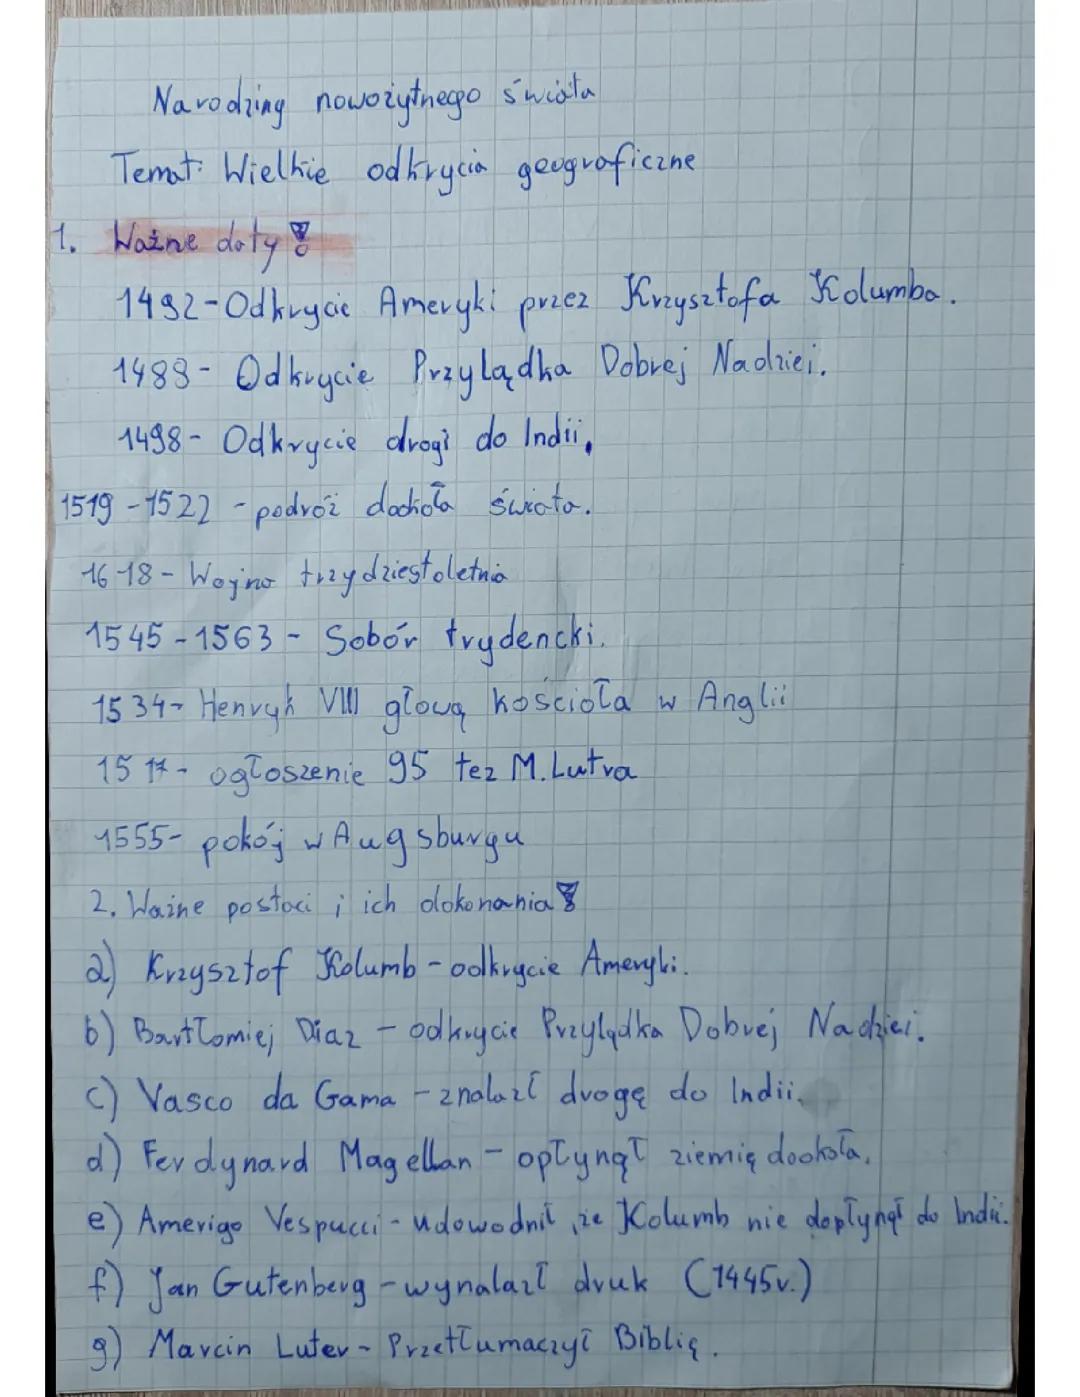 Narodziny nowożytnego świata
Temat: Wielkie odkrycia geograficzne
1. Ważne daty!
1492-Odkrycie Ameryki przez Krzysztofa Kolumba.
1488- Odkrycie Przylądka Dobrej Nadziei.
1498- Odkrycie drogi do Indii.
1519-1522 - podróż dookoła świata.
1618- Wojna trzydziestoletnia
1545-1563 - Sobór trydencki.
1534- Henryk VIII głową kościoła w Anglii
1517- ogłoszenie 95 tez M. Lutra
1555- pokój w Augsburgu
2. Ważne postaci i ich dokonania!
a) Krzysztof Kolumb - odkrycie Ameryki.
b) Bartłomiej Diaz - odkrycie Przylądka Dobrej Nadziei.
c) Vasco da Gama - znalazł drogę do Indii.
d) Ferdynard Magellan - opłynął ziemię dookoła.
e) Amerigo Vespucci - udowodnił, że Kolumb nie dopłynął do Indii.
f) Jan Gutenberg - wynalazł druk (1445r.)
g) Marcin Luter - Przetłumaczył Biblię.